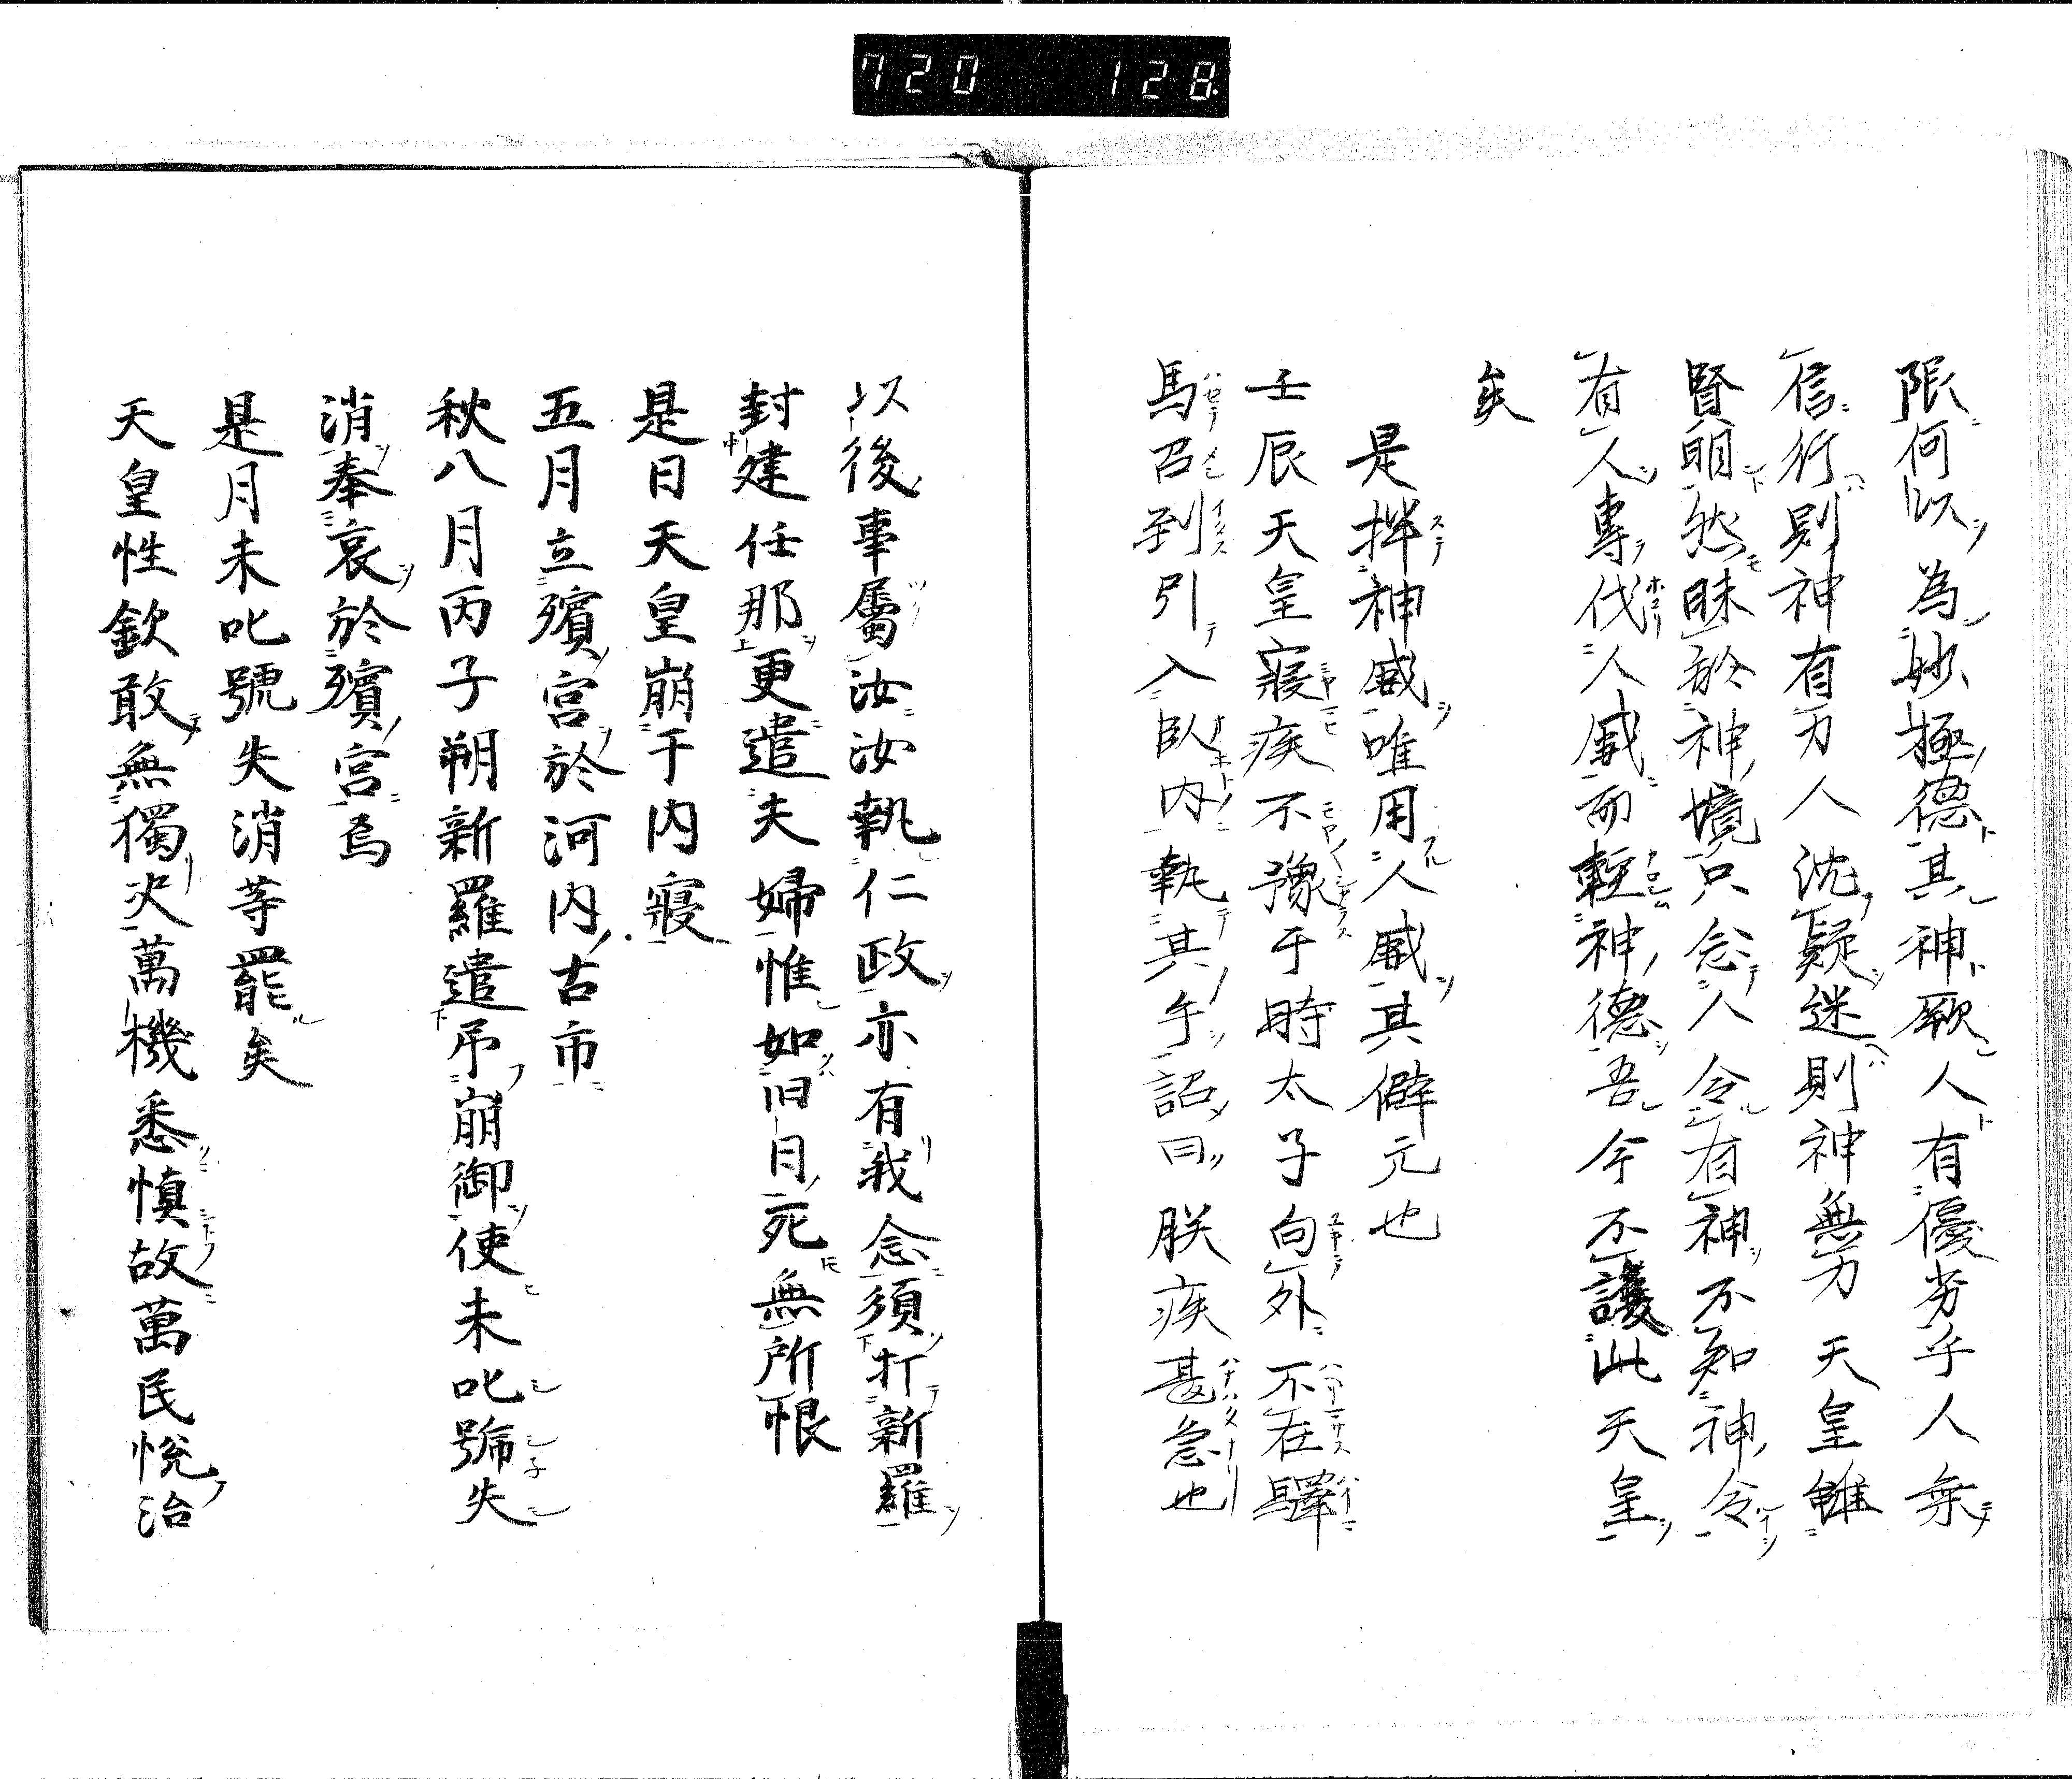 720 128
限何以為妙極德其神厥人有優劣乎人無
信行則神有力人沈疑迷則神無力天皇雖
賢明然昧於神境只念人令有神不知神令
有人專伐人威而輕神德吾今不護此天皇
矣
是拌神威唯用人威其僻元也
壬辰天皇寢疾不豫于時太子向外不在驛
馬召到引入臥内執其手詔曰朕疾甚急也
以後事屬汝汝執仁政亦有我念須打新羅
封建任那更遣夫婦惟如旧日死無所恨
是日天皇崩于内寢
五月立殯宮於河内古市
秋八月丙子朔新羅遣吊崩御使未叱號失
消奉哀於殯宮焉
是月未叱號失消等罷矣
天皇性欽敢無獨決萬機悉慎故萬民悅治